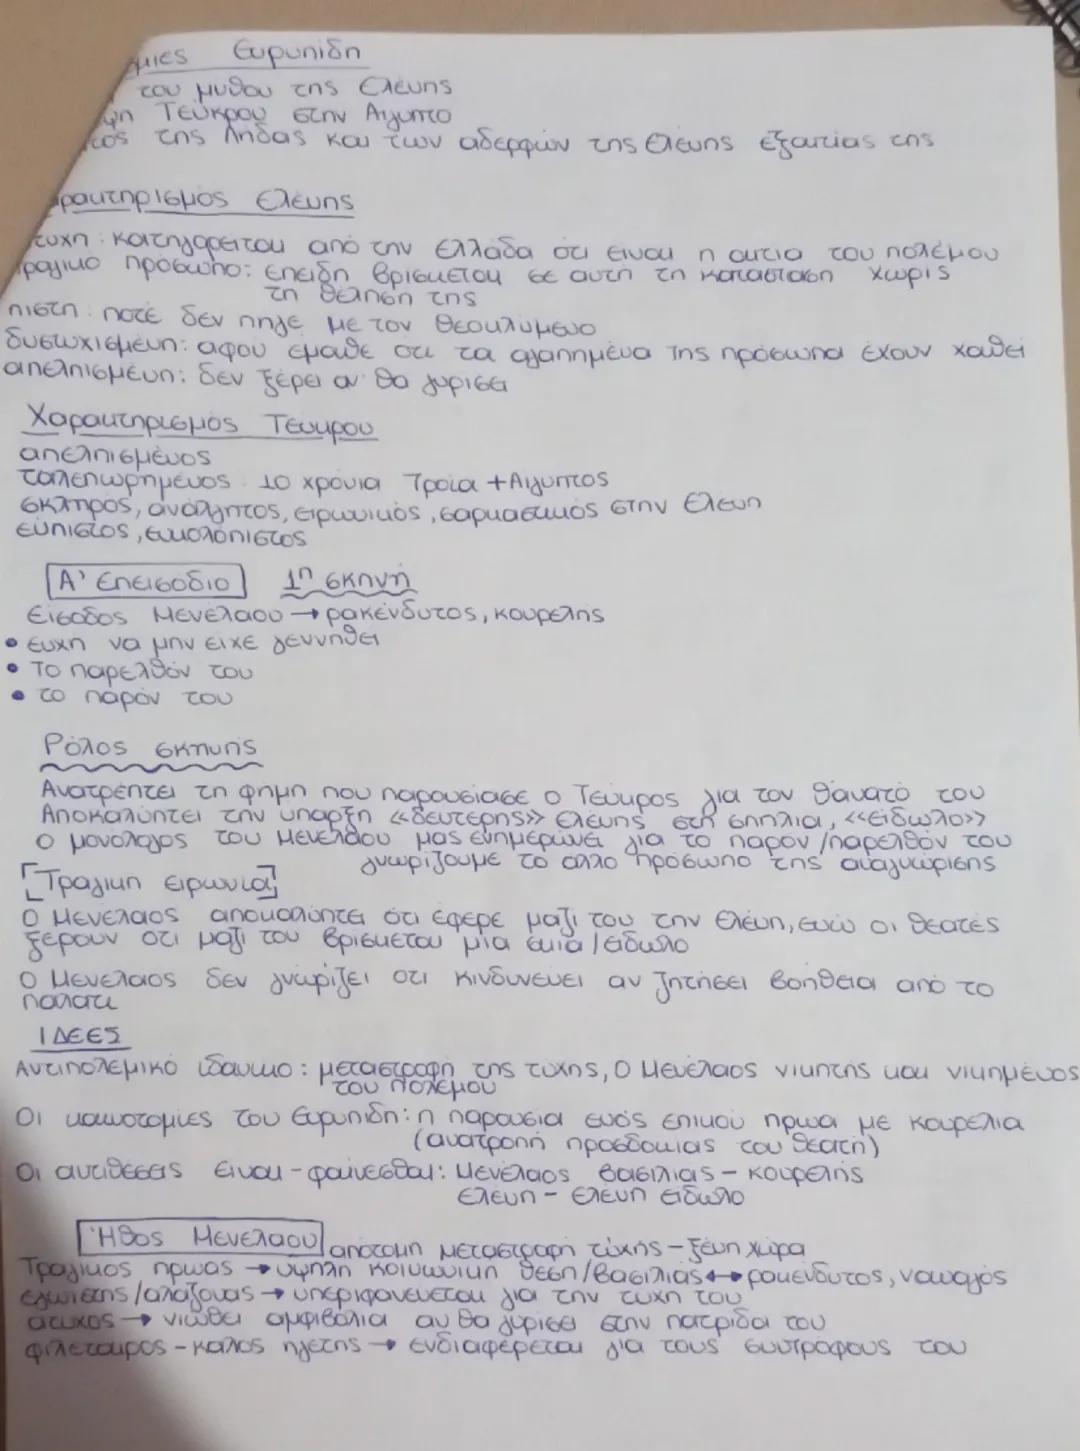 μιες Ευριπίδη
του μυθου της Ελένης
ψη Τεύκρου στην Αιγυπτο
τος της Ληδας και των αδερφών της Ελένης εξαιτίας της
ρακτηρισμός Ελένης
τυχη: κατηγορειται από την Ελλάδα οτι ειναι η αιτια του πολέμου
τραγικο πρόσωπο: επειδη βρισκεται σε αυτη τη κατασταση χωρις
τη θέληση της
πιστη: ποτέ δεν πηγε με τον Θεοκλυμενο
δυστυχισμένη: αφου εμαθε οτι τα αγαπημένα της πρόσωπα έχουν χαθεί
απελπισμένη: δεν ξέρει αν θα γυρισει
Χαρακτηρισμός Τευκρου
απελπισμένος
ταλεπωρημένος: 10 χρόνια Τροία + Αιγυπτος
σκληρός, ανάλγητος, ειρωνικός, σαρκαστικός στην Ελένη
εύπιστος, ευκολόπιστος
Α' Επεισόδιο 1η σκηνή
Είσοδος Μενέλαου → ρακένδυτος, κουρελης
• ευχη να μην ειχε γεννηθει
• Το παρελθόν του
• το παρόν του
Ρόλος σκηνής
Ανατρέπτει τη φημη που παρουσίασε ο Τεύκρος για τον θάνατό του
Αποκαλύπτει την υπαρξη «δεύτερης» Ελένης στη σπηλια, «είδωλο»
Ο μονόλογος του Μενελάου μας ενημερώνει για το παρόν/παρελθόν του
γνωρίζουμε το άλλο πρόσωπο της αναγνώρισης
[Τραγικη ειρωνια]
Ο Μενέλαος αποκαλύπτει ότι έφερε μαζι του την Ελένη, ενώ οι θεατές
ξερουν οτι μαζι του βρισκεται μια σκιά/ειδωλο
Ο Μενελαος δεν γνωρίζει οτι κινδυνεύει αν ζητησει βοήθεια από το
παλατι
ΙΔΕΕΣ
Αντιπολεμικό ιδανικο: μεταστροφη της τυχης, Ο Μενέλαος νικητης και νικημένος
του πολέμου
Οι καινοτομίες του Ευριπιδη: η παρουσια ενός επικού ηρωα με κουρέλια
(ανατροπή προσδοκιας του θεατή)
Οι αντιθεσεις είναι-φαίνεσθαι: Μενέλαος βασιλιας - κουρελης
Ελενη - Ελενη ειδωλο
Ήθος Μενελαου απότομη μεταστροφή τύχης - ξένη χώρα
Τραγικος ηρωας → υψηλη κοινωνικη θεση/βασιλιάς ↔ ρακένδυτος, ναυαγός
εγωιστης/αλαζονας → υπεριφανευεται για την τυχη του
ατυχος → νιωθει αμφιβολια αν θα γυρισει στην πατρίδα του
φιλεταιρος - καλός ηγετης → ενδιαφέρεται για τους συντρόφους του